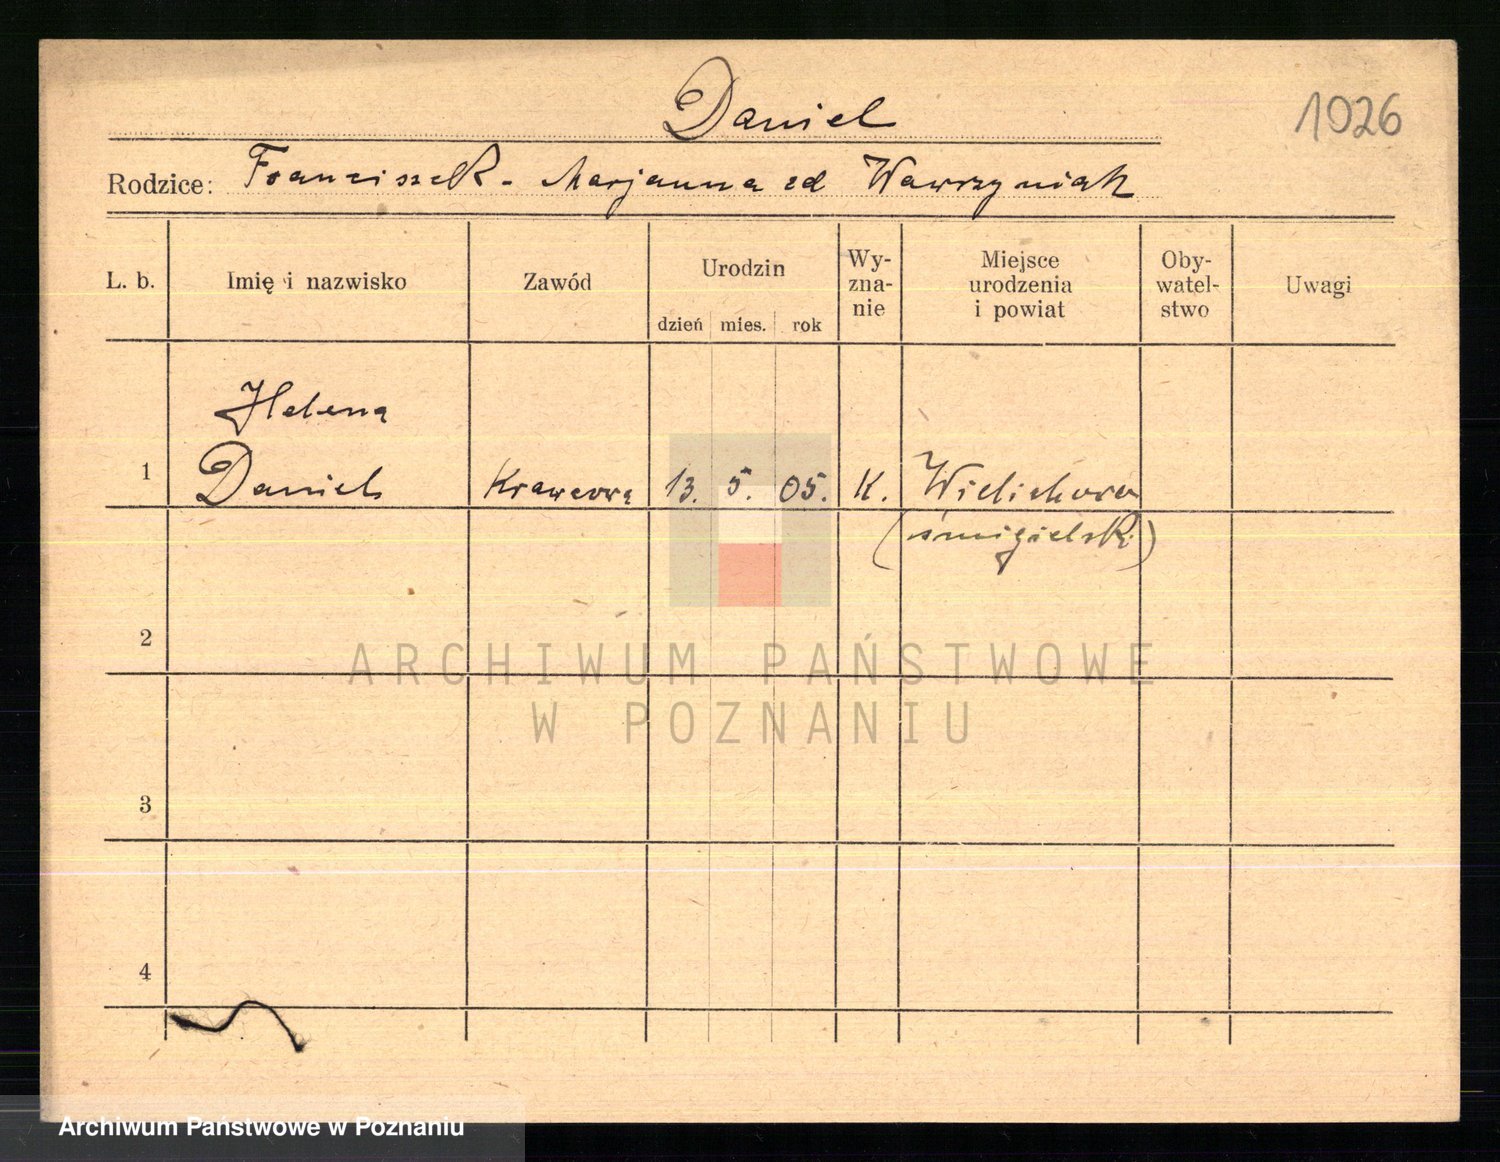 Daniel
1026
Rodzice: Franciszek - Marjanna zd Wawrzyniak
L. b.
Imię i nazwisko
Zawód
Urodzin
dzień mies. rok
Wy-
zna-
nie
Miejsce
urodzenia
i powiat
Oby-
watel-
stwo
Uwagi
Helena
1 Daniel Krawcowa 13. 5. 05. K. Wielichowo
(śmigielski)
2
ARCHIWUM PAŃSTWOWE
W POZNANIU
3
4
Archiwum Państwowe w Poznaniu